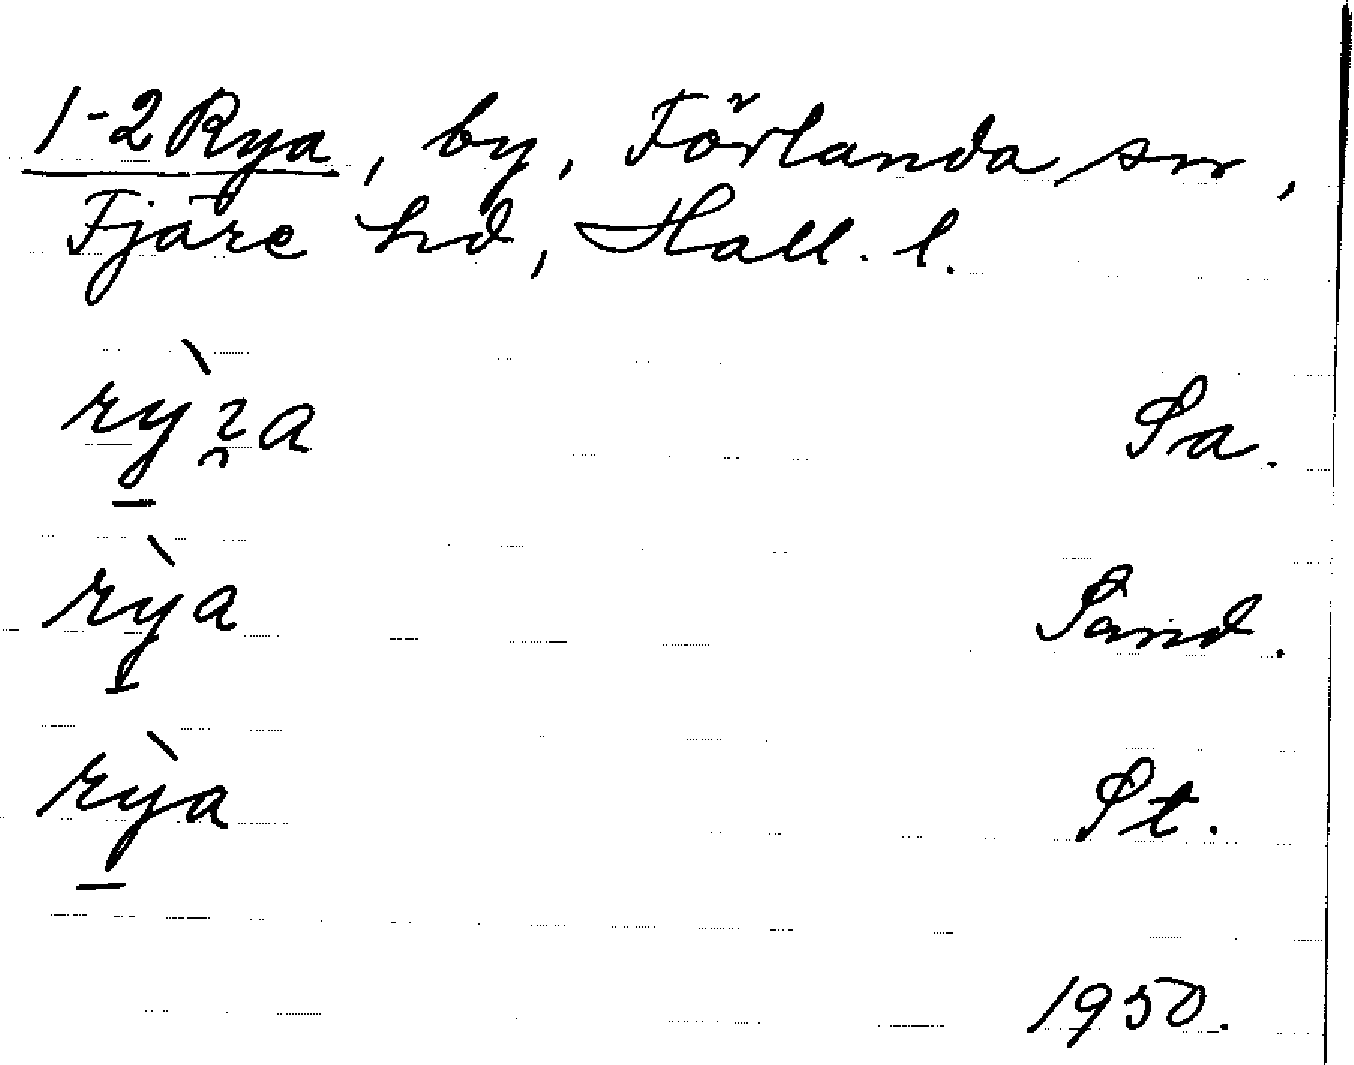 1-2 Rya, by, Förlanda sn,
Fjäre hd, Hall. l.
rỳɀa Sa.
rỳa Sand.
rỳa St.
1950.